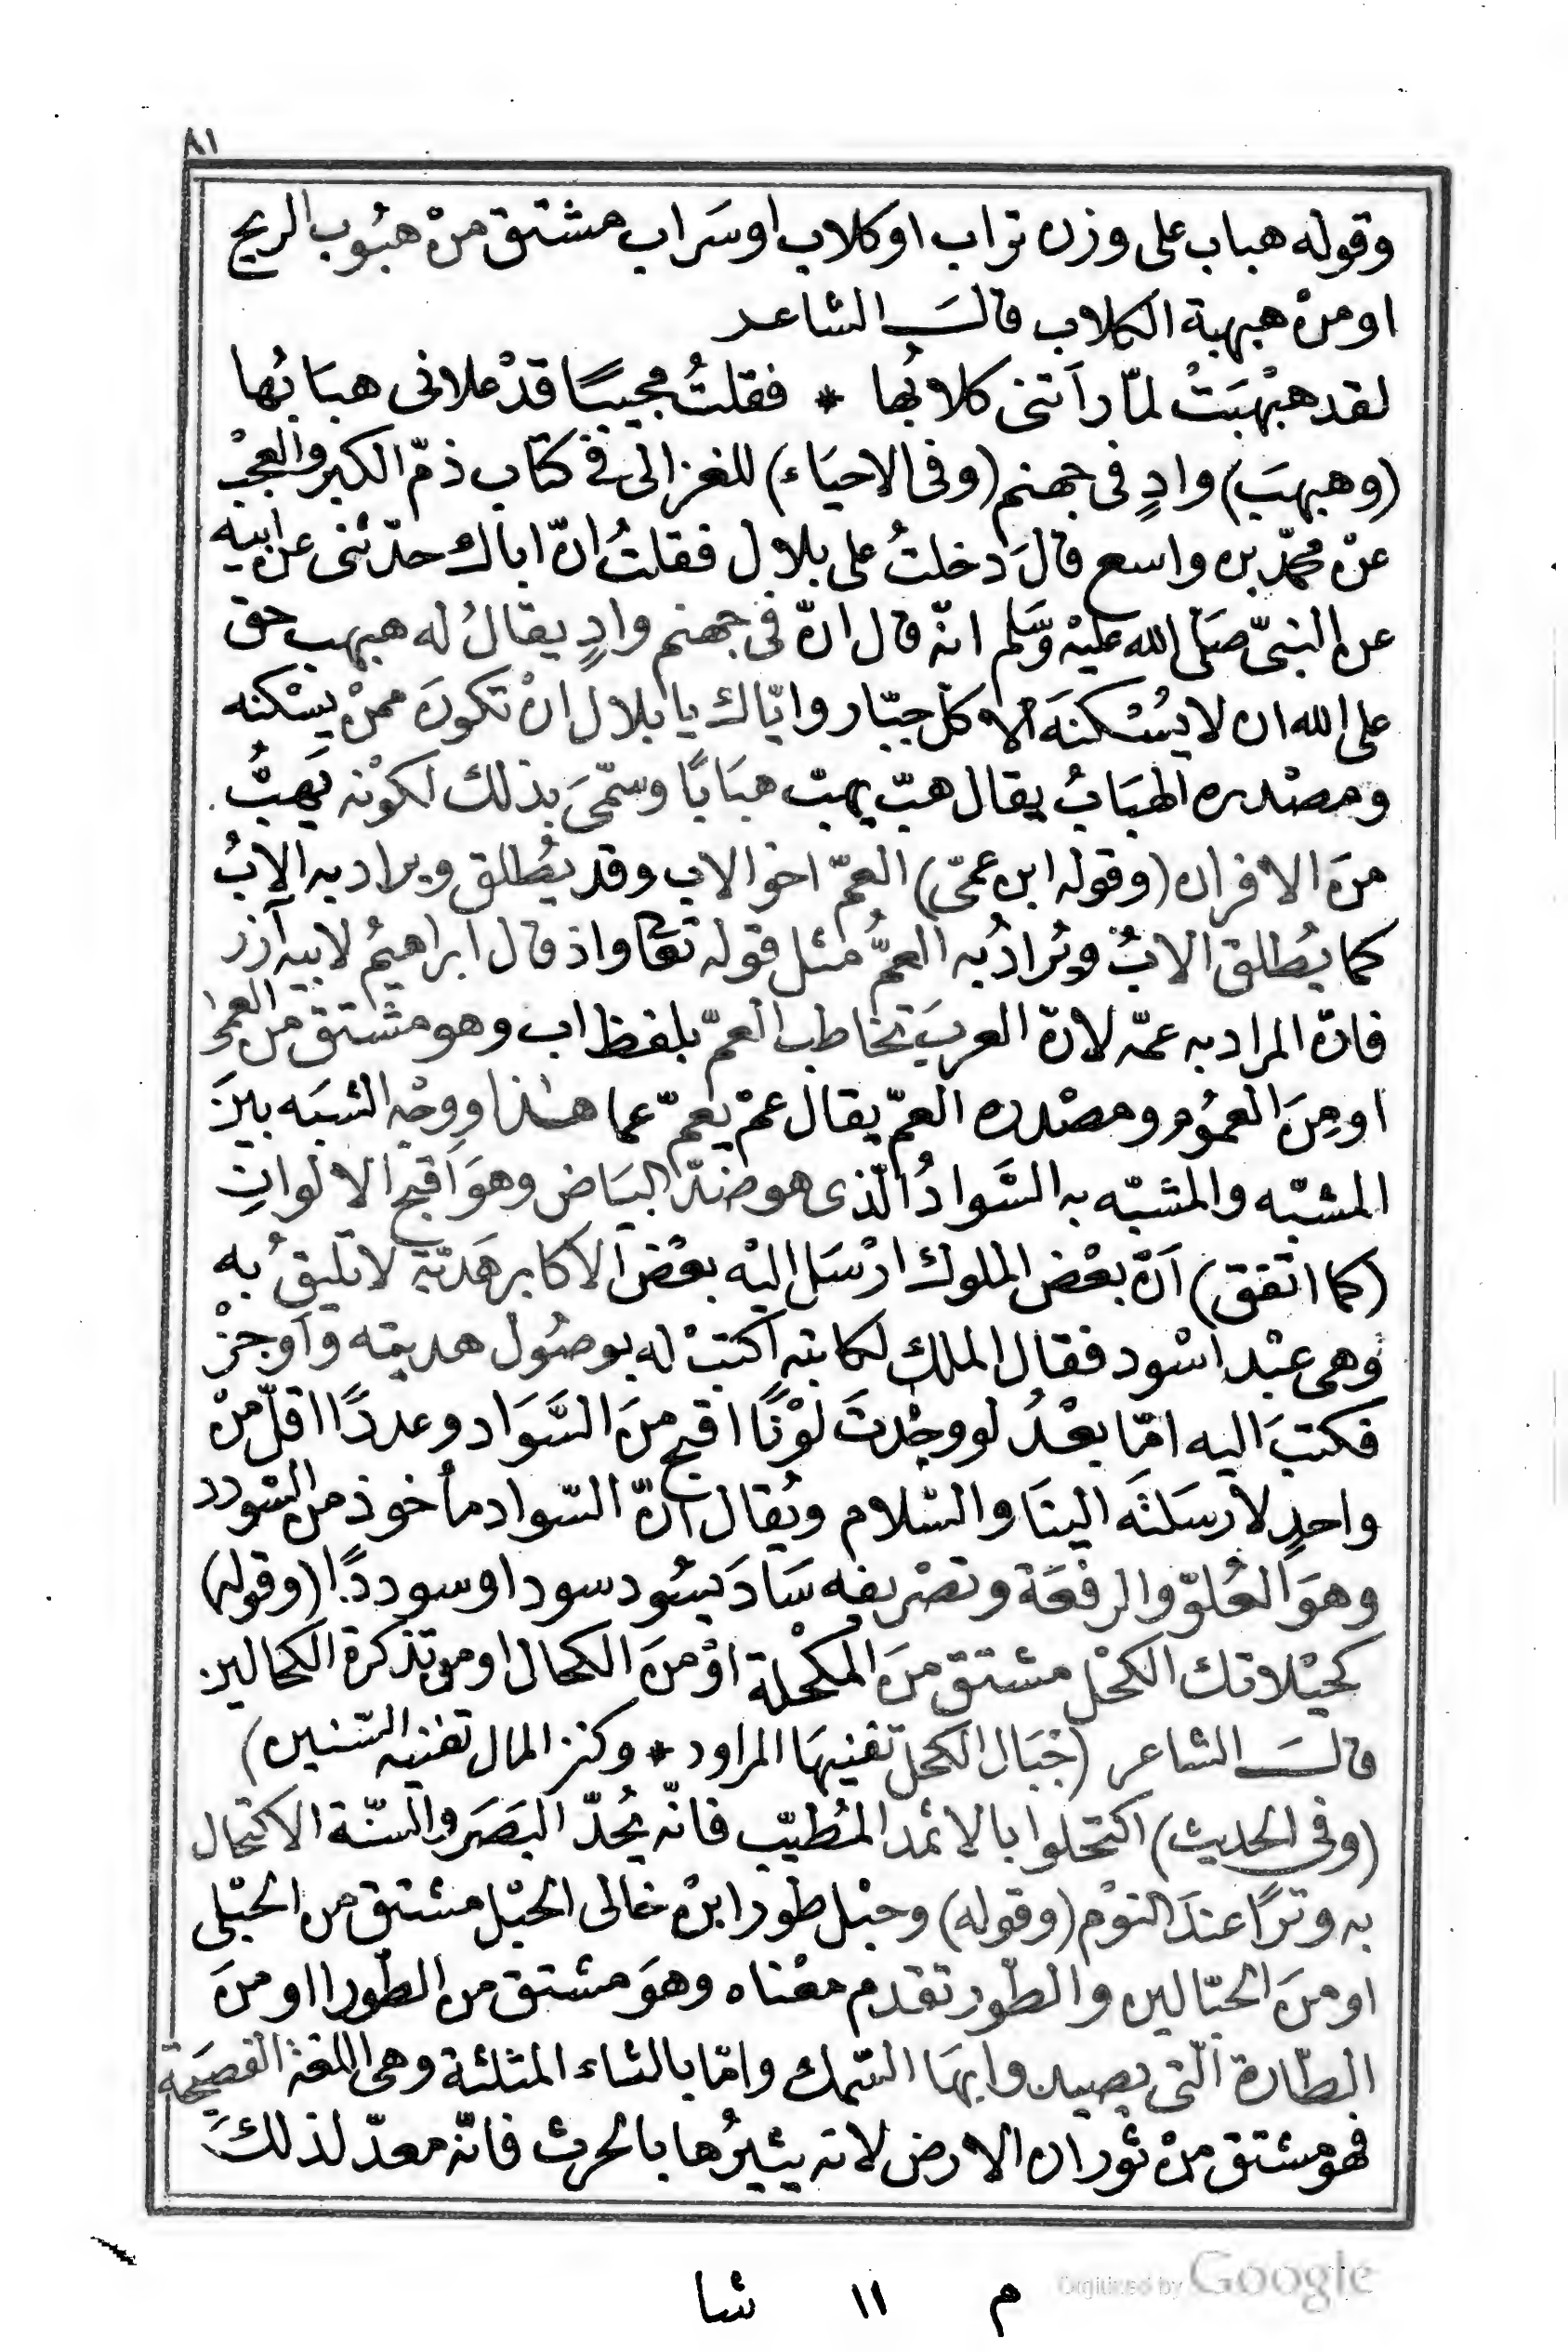 ٨١
وقوله هباب على وزن تراب او كلاب او سَراب مشتق منْ هبُوب الريح
او منْ هبهبة الكلاب قالَ الشاعر
لقد هبْهبَتْ لمّا رأَتنى كلابُها * فقلتُ مجيبًا قدْ علانى هبَابُها
(وهبهبَ) وادٍ فى جهنم (وفى الاحيَاء) للغزالى فى كتاب ذمّ الكبر والعجْب
عنْ محمّد بن واسع قالَ دخلتُ على بلال فقلتُ انّ اباك حدّثنى عن ابيه
عن النبىّ صَلّى الله عليْه وَسَّلم انّه قال انّ فى جهنم وادٍ يقالُ له هبهب حق
على الله ان لا يسْكنَه الا كلّ جبّار وايّاك يا بلال انْ تكونَ ممنْ يسْكنه
ومصْدره الهبَابُ يقال هبّ يهبّ هبَابًا وسمّىَ بذلك لكوْنه يَهبُّ
منَ الافران (وقوله ابن عمىّ) العمّ اخو الاب وقد يُطلق ويراد به الابُ
كما يُطلق الابُ ويُرادُ به العمُّ مثل قوله تعا واذ قال ابراهيمُ لابيه آزر
فانّ المراد به عمّه لانّ العربَ تخاطب العمّ بلفظ اب وهو مشتق من العمى
او مِنَ العمُوم ومصْدره العمّ يقال عمّ يعمّ عما هذا ووجْه الشبَه بينَ
المشبّه والمشبّه به السَّوادُ الّذى هو ضدّ البيَاض وهوَ اقبح الالوانِ
(كما اتفق) اَنّ بعْض الملوك ارْسَل اليْه بعْض الاكابر هَديّة لا تليقُ به
وهى عبْد اسْود فقال الملك لكاتبه اكتبْ له بوصُول هديته واوجزْ
فكتبَ اليه امّا بعْدُ لو وجْدتَ لوْنًا اقبح منَ السَّوَاد وعددًا اقلّ منْ
واحدٍ لارسَلته اليْنَا والسّلام ويُقال انّ السّواد مأخوذ من السّودد
وهوَ العُلوّ والرفعَة وتصْريفه سَادَ يسُود سودا وسوددًا (وقوله)
كحيْلاتك الكحْل مشتق منَ المكْحلة اوْ منَ الكحال او من تذكرة الكحالين
قالَ الشاعر (جبَال الكحل تفنيهَا المراود * وكنز المال تفنيه السّنين)
(وفى الحديث) اكتحلوا بالاثمد المُطيّب فانّه يُحدّ البَصَر والسّنّة الاكتحال
به وترًا عندَ النوْم (وقوله) وحبْل طور ابنْ خالى الحبْل مشتق من الحبْلى
او منَ الحبّالين والطّور تقدم معْناه وهوَ مشتق من الطُور او منَ
الطّارة الّتى يصيدوا بهَا السّمك وامّا بالثاء المثلثة وهى اللغة الفصيحَة
فهو مشتق منْ ثوران الارض لانه يثيرُها بالحرث فانّه معدّ لذلكَ
م ١١ شا
Digitized by Google